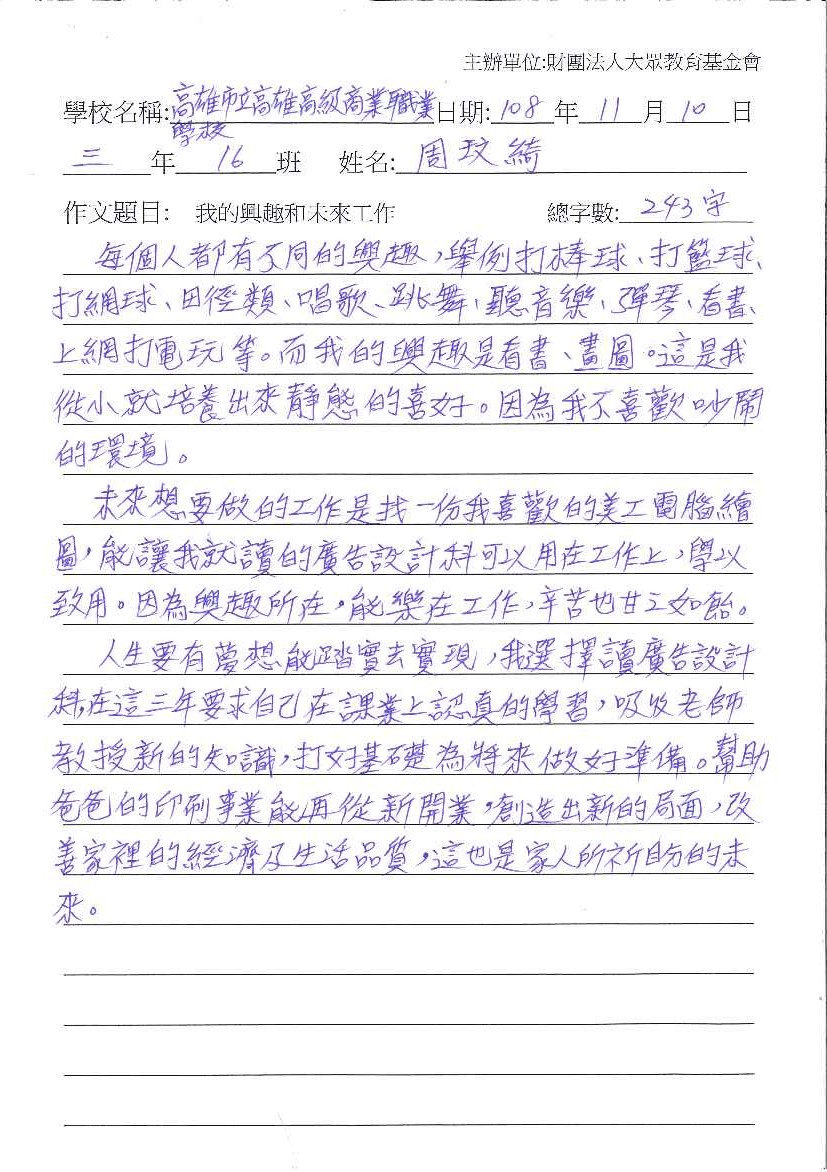 主辦單位:財團法人大眾教育基金會
學校名稱:高雄市立高雄高級商業職業學校日期:108年11月10日
三年16班 姓名:周玟綺
作文題目: 我的興趣和未來工作 總字數:243字
每個人都有不同的興趣,舉例打棒球、打籃球、
打網球、田徑類、唱歌、跳舞、聽音樂、彈琴、看書、
上網打電玩等。而我的興趣是看書、畫圖。這是我
從小就培養出來靜態的喜好。因為我不喜歡吵鬧
的環境。
未來想要做的工作是找一份我喜歡的美工電腦繪
圖,能讓我就讀的廣告設計科可以用在工作上,學以
致用。因為興趣所在,能樂在工作,辛苦也甘之如飴。
人生要有夢想能踏實去實現,我選擇讀廣告設計
科,在這三年要求自己在課業上認真的學習,吸收老師
教授新的知識,打好基礎為將來做好準備。幫助
爸爸的印刷事業能再從新開業,創造出新的局面,改
善家裡的經濟及生活品質,這也是家人所祈盼的未
來。